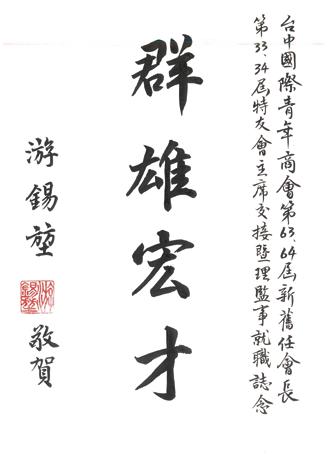 台中國際青年商會第63.64屆新舊任會長
第33.34屆特友會主席交接暨理監事就職誌念
群雄宏才
游錫堃
敬賀